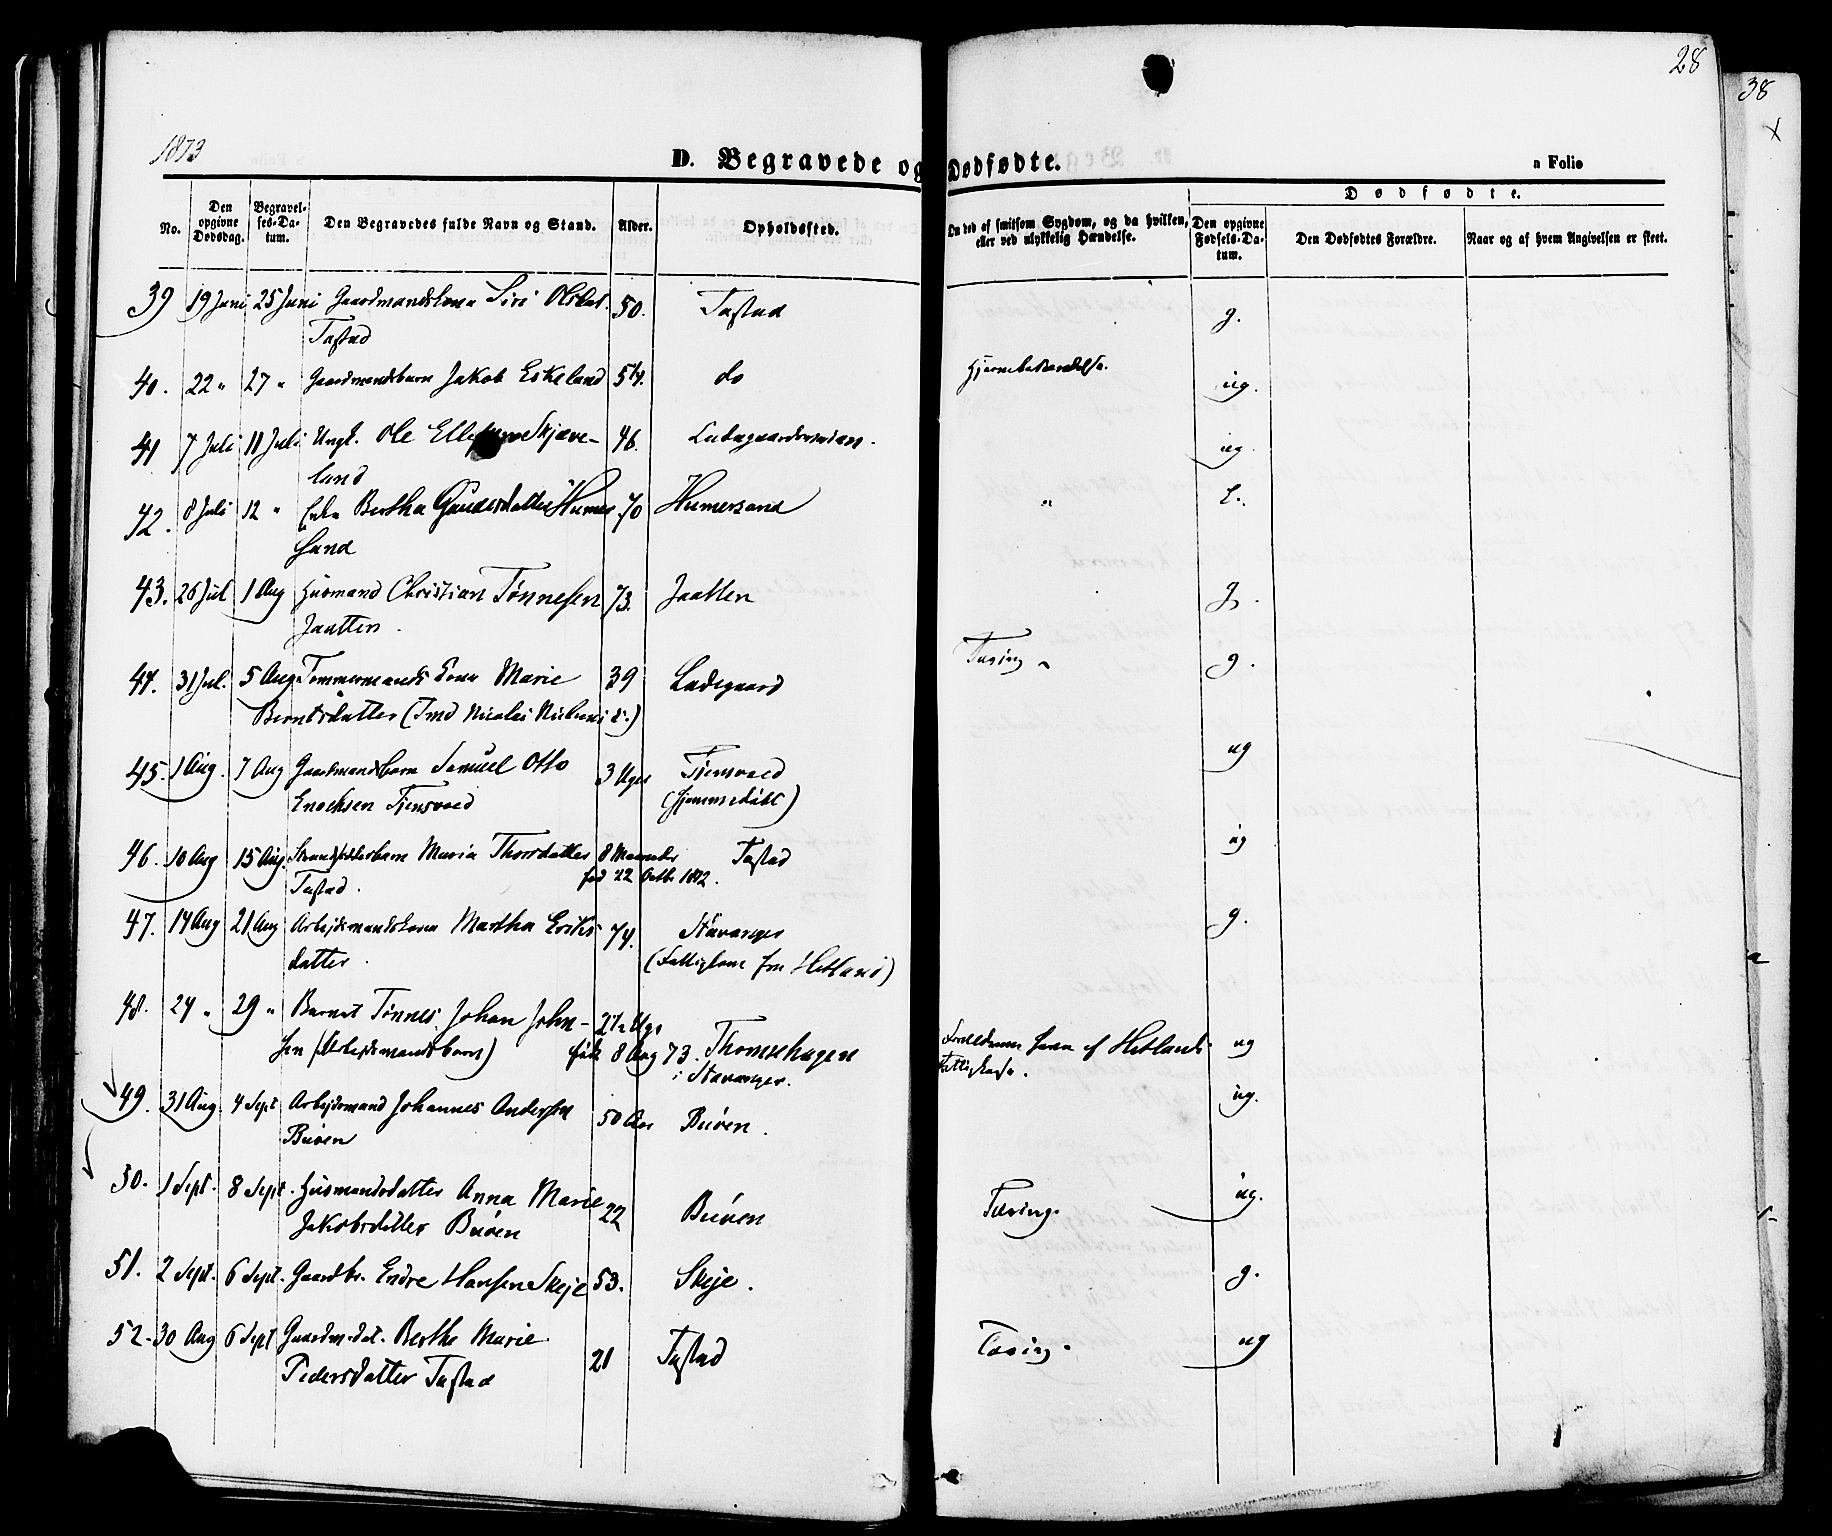 28
38
1873
D. Begravede og Dødfødte.
a Folio
No.
Den opgivne Dødsdag.
Begravelses-Datum.
Den Begravedes fulde Navn og Stand.
Alder.
Opholdssted.
Om død af smitsom Sygdom, og da hvilken, eller ved ulykkelig Hændelse.
Dødfødte.
Den opgivne Fødsels-Datum.
Den Dødfødtes Forældre.
Naar og af hvem Angivelsen er skeet.
39 19 Juni 25 Juni Gaardmandskone Siri Olsdat. 50. Tastad g.
Tastad
40. 22 " 27 " Gaardmandsbarn Jakob Eskeland do ug.
41 7 Juli 11 Juli Ungk. Ole Skjæve- 46. ug.
land
42. 8 Juli 12 " Enke Bertha Humer 70 Humersand " E.
sand
43. 26 Jul 1 Aug Husmand Christian Tønnesen 73. Jaatten g.
Jaatten.
44. 31 Jul. 5 Aug Tømmermands Kone Marie 39 Ladegaard Tæring g.
Berntsdatter (Tmd Nicolai Nielsens K.)
45. 1 Aug. 7 Aug Gaardmandsbarn Samuel Otto 3 Uger Tjensvold ug
Enochsen Tjensvold (hjemmedøbt)
46. 10 Aug 15 Aug. Strandsidderbarn Maria Thorsdatter 8 Maaneder Tastad ug
Tastad. fød 22 Octb. 1872.
47. 14 Aug 21 Aug Arbejdsmandskone Martha Eriks 74. Stavanger g.
datter. (Fattiglem fra Hetland)
48. 24 " 29 " Barnet Tønnes Johan John- 2½ Uge
sen (Arbejdsmandsbarn) født 8 Aug 73. Thomsehagen ug
i Stavanger.
Forældrene have af Hetlands
Fattigkasse.
49. 31 Aug 4 Sept Arbejdsmand Johannes Andersen 50 Aar Buøen. ug.
Buøen
50. 1 Sept. 8 Sept. Husmandsdatter Anna Marie 22 Buøen Tæring. ug.
Jakobsdatter Buøen
51. 2 Sept. 6 Sept. Gaardbr. Endre Hansen Skeje 53. Skeje. g.
52. 30 Aug 6 Sept Gaardm.dat. Berthe Marie 21 Tastad Tæring. ug
Pedersdatter Tastad